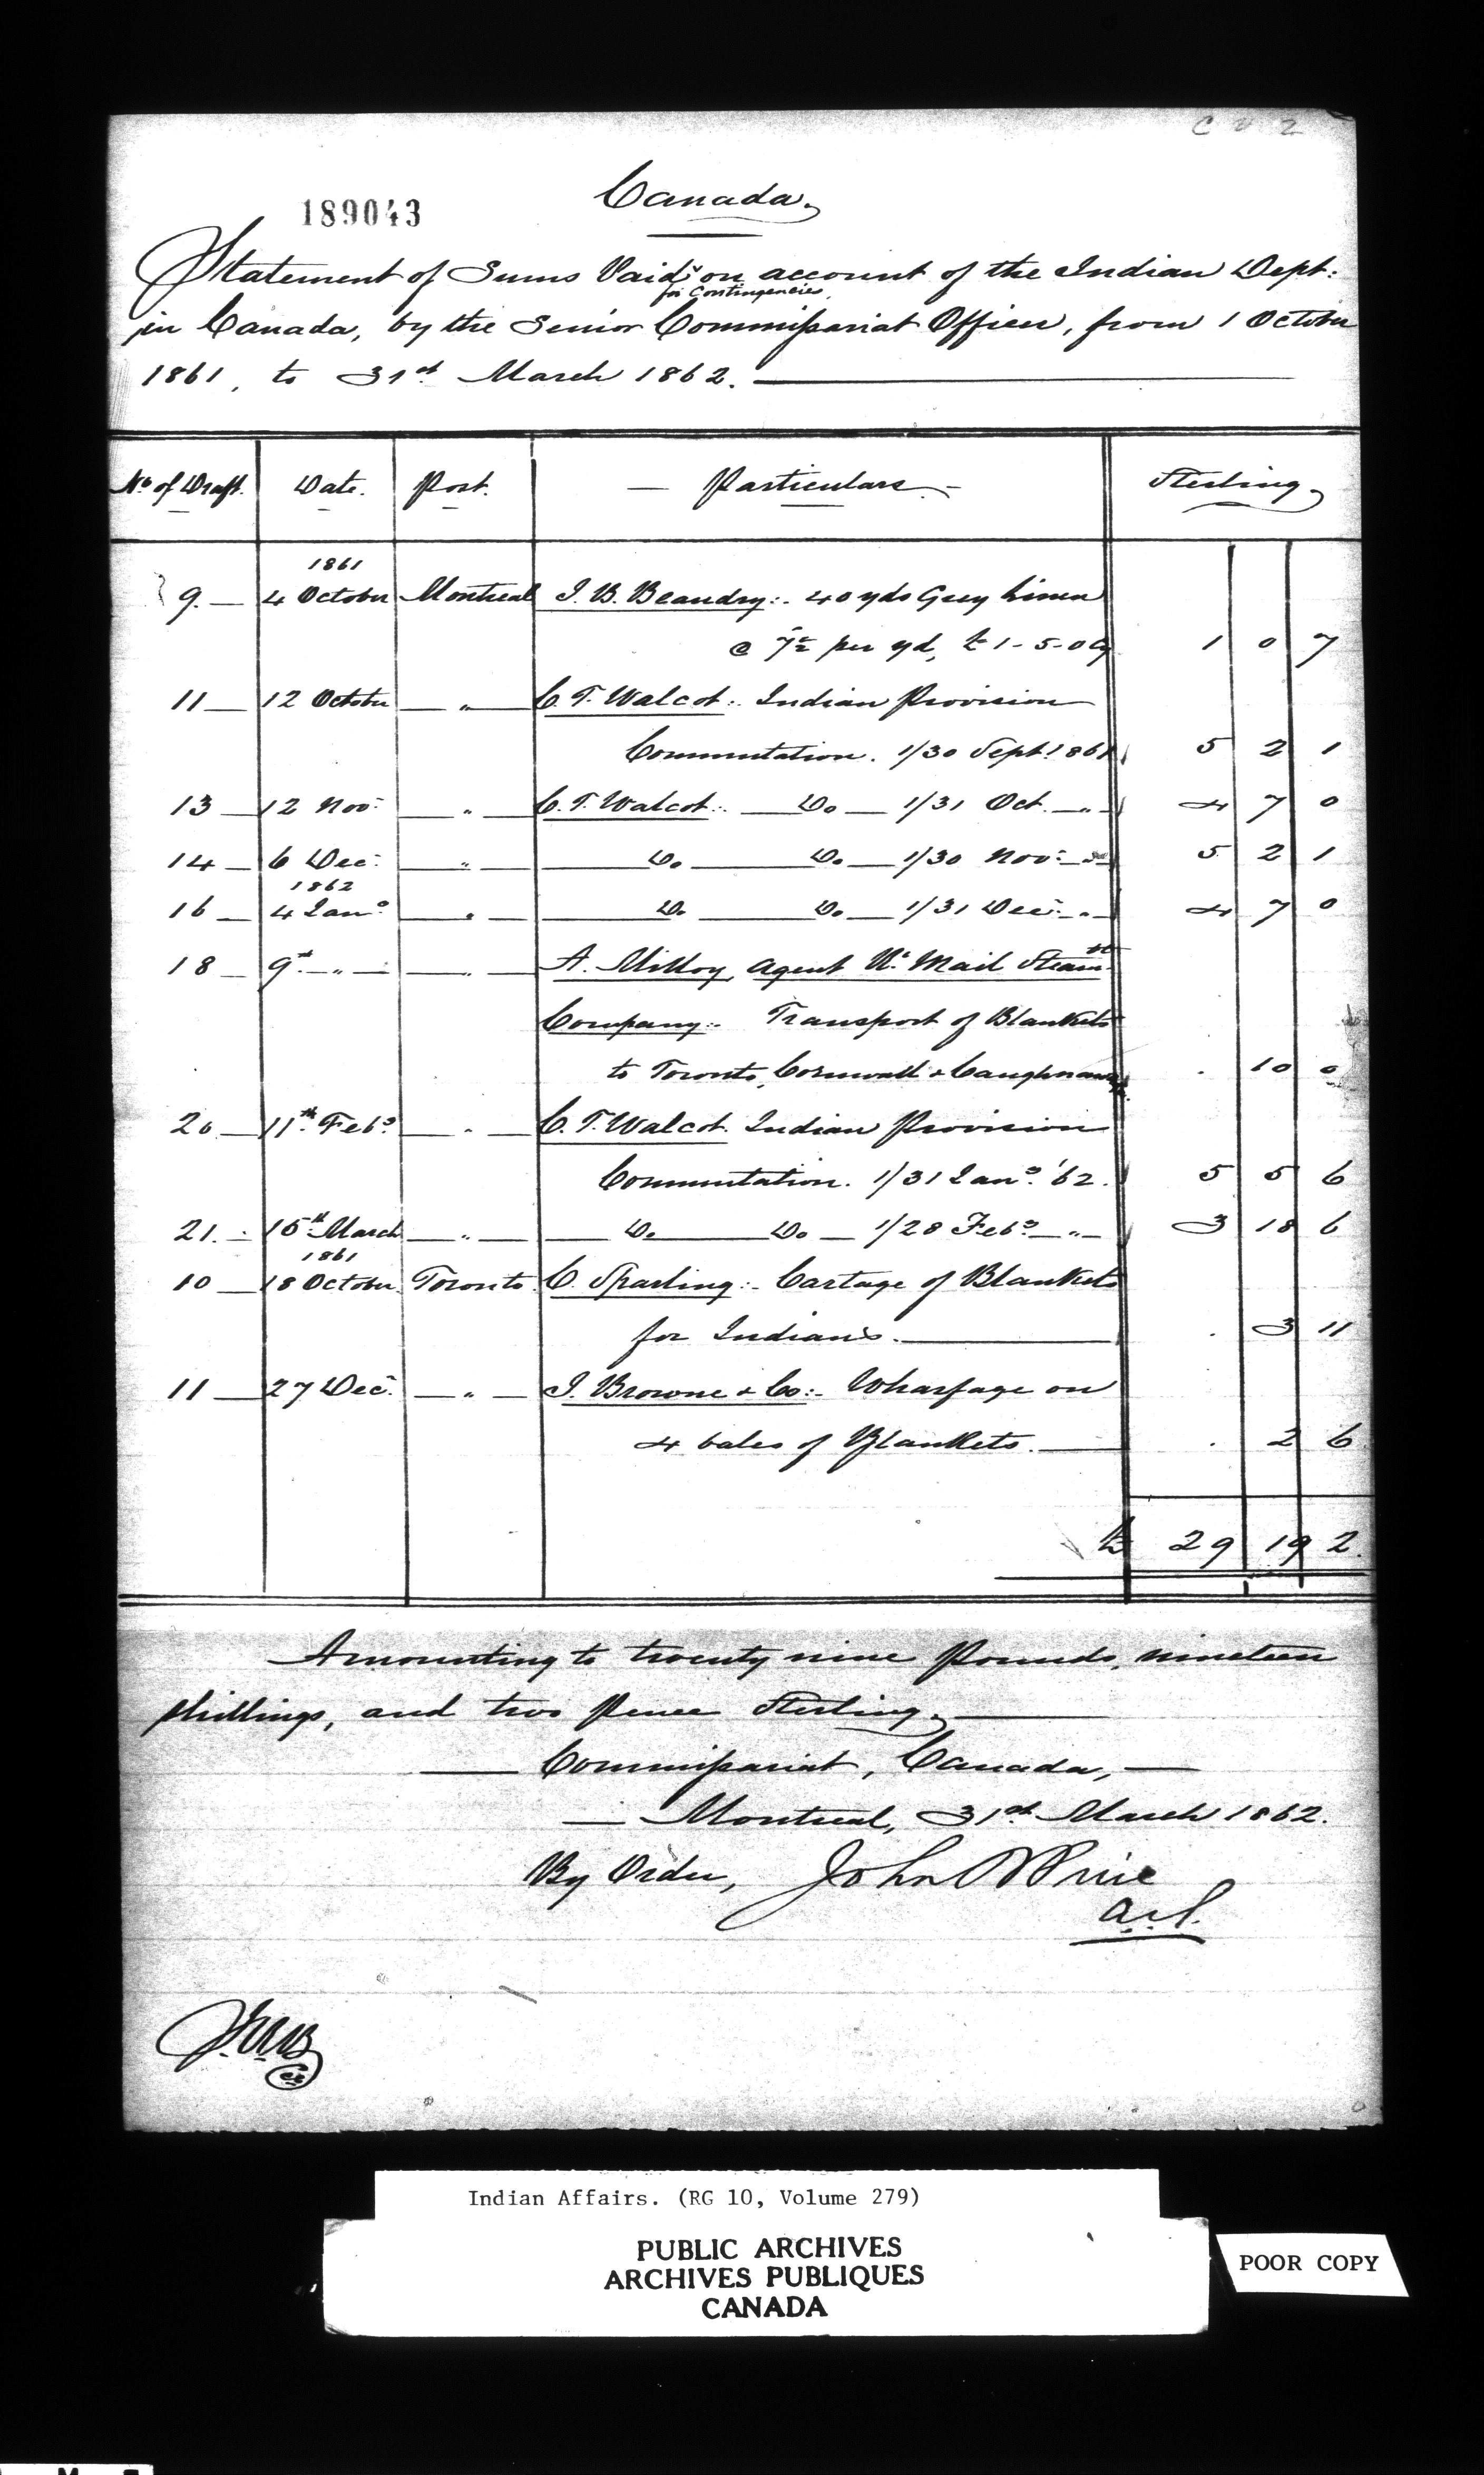 C v 2
189043
Canada.
Statement of Sums Paid on account of the Indian Dept:
for Contingencies,
in Canada, by the Senior Commissariat Officer, from 1 October
1861, to 31st March 1862.
No of Draft. Date. Post. Particulars. Sterling
1861
9. 4 October Montreal J. B. Beaudry: 40 yds Grey Linen
@ 7½ per yd, £1-5-0 Cy 1 0 7
11 12 October " C. T. Walcot: Indian Provision
Commutation. 1/30 Sept. 1861 5 2 1
13 12 Nov: " C. T. Walcot: Do 1/31 Oct. " 4 7 0
14 6 Dec: " Do Do 1/30 Nov: " 5 2 1
1862
16 4 Jany " Do Do 1/31 Dec: " 4 7 0
18 9th " " A. Milloy, Agent Rl. Mail Steam
Company: Transport of Blankets
to Toronto, Cornwall & Caughnawaga . 10 0
20 11th Feby " C. T. Walcot. Indian Provision
Commutation. 1/31 Jany '62. 5 5 6
21. 15th March " Do Do 1/28 Feby " 3 18 6
1861
10 18 October Toronto C. Sparling: Cartage of Blankets
for Indians. . 3 11
11 27 Dec: " J. Browne & Co: Wharfage on
4 bales of Blankets. . 2 6
£ 29 19 2.
Amounting to twenty nine Pounds, nineteen
shillings, and two Pence Sterling.
Commissariat, Canada,
Montreal, 31st March 1862.
By Order, John W Price
Indian Affairs. (RG 10, Volume 279)
PUBLIC ARCHIVES
ARCHIVES PUBLIQUES
CANADA
POOR COPY